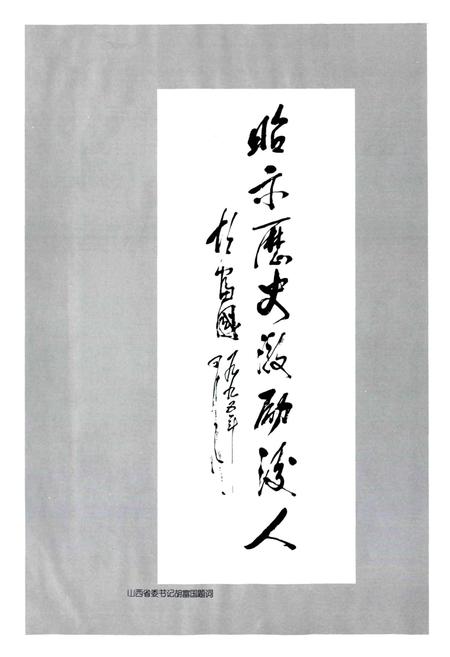 昭示歷史激励後人
胡富國
一九九五年
四月
山西省委书记胡富国题词